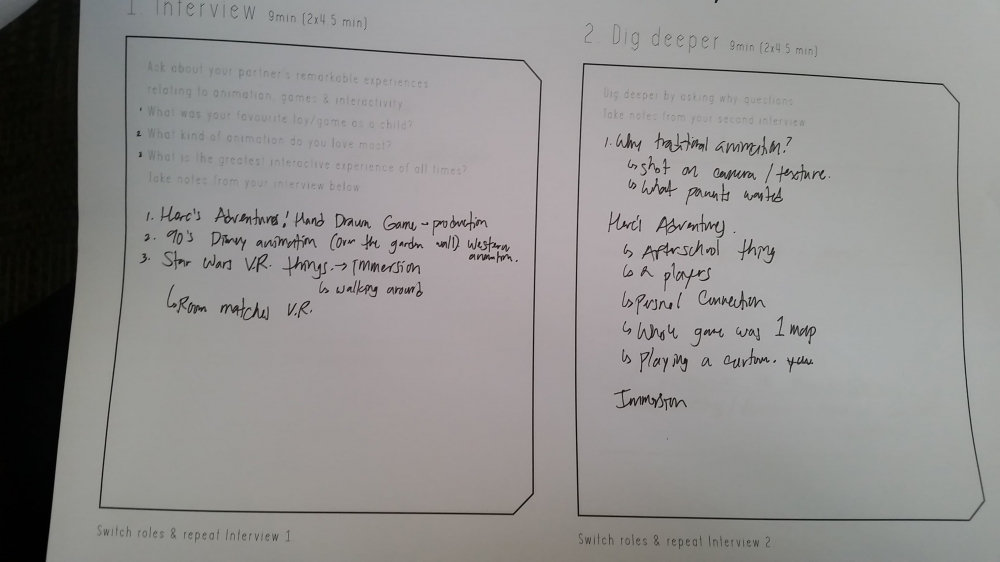 1 Interview 9min (2x4 5 min)
Ask about your partner's remarkable experiences
relating to animation, games & interactivity
1 What was your favourite toy/game as a child?
2 What kind of animation do you love most?
3 What is the greatest interactive experience of all times?
Take notes from your interview below
1. Herc's Adventures! Hand Drawn Game → production
2. 90's Disney animation (over the garden wall) Western animation.
3. Star Wars V.R. things. → Immersion
↳ walking around
↳ Room matches V.R.
Switch roles & repeat Interview 1
2. Dig deeper 9min (2x4 5 min)
Dig deeper by asking why questions
Take notes from your second interview
1. Why traditional animation?
↳ shot on camera / texture.
↳ What parents wanted
Herc's Adventures.
↳ Afterschool thing
↳ 2 players
↳ Personal Connection
↳ Whole game was 1 map
↳ Playing a cartoon.
Immersion
Switch roles & repeat Interview 2